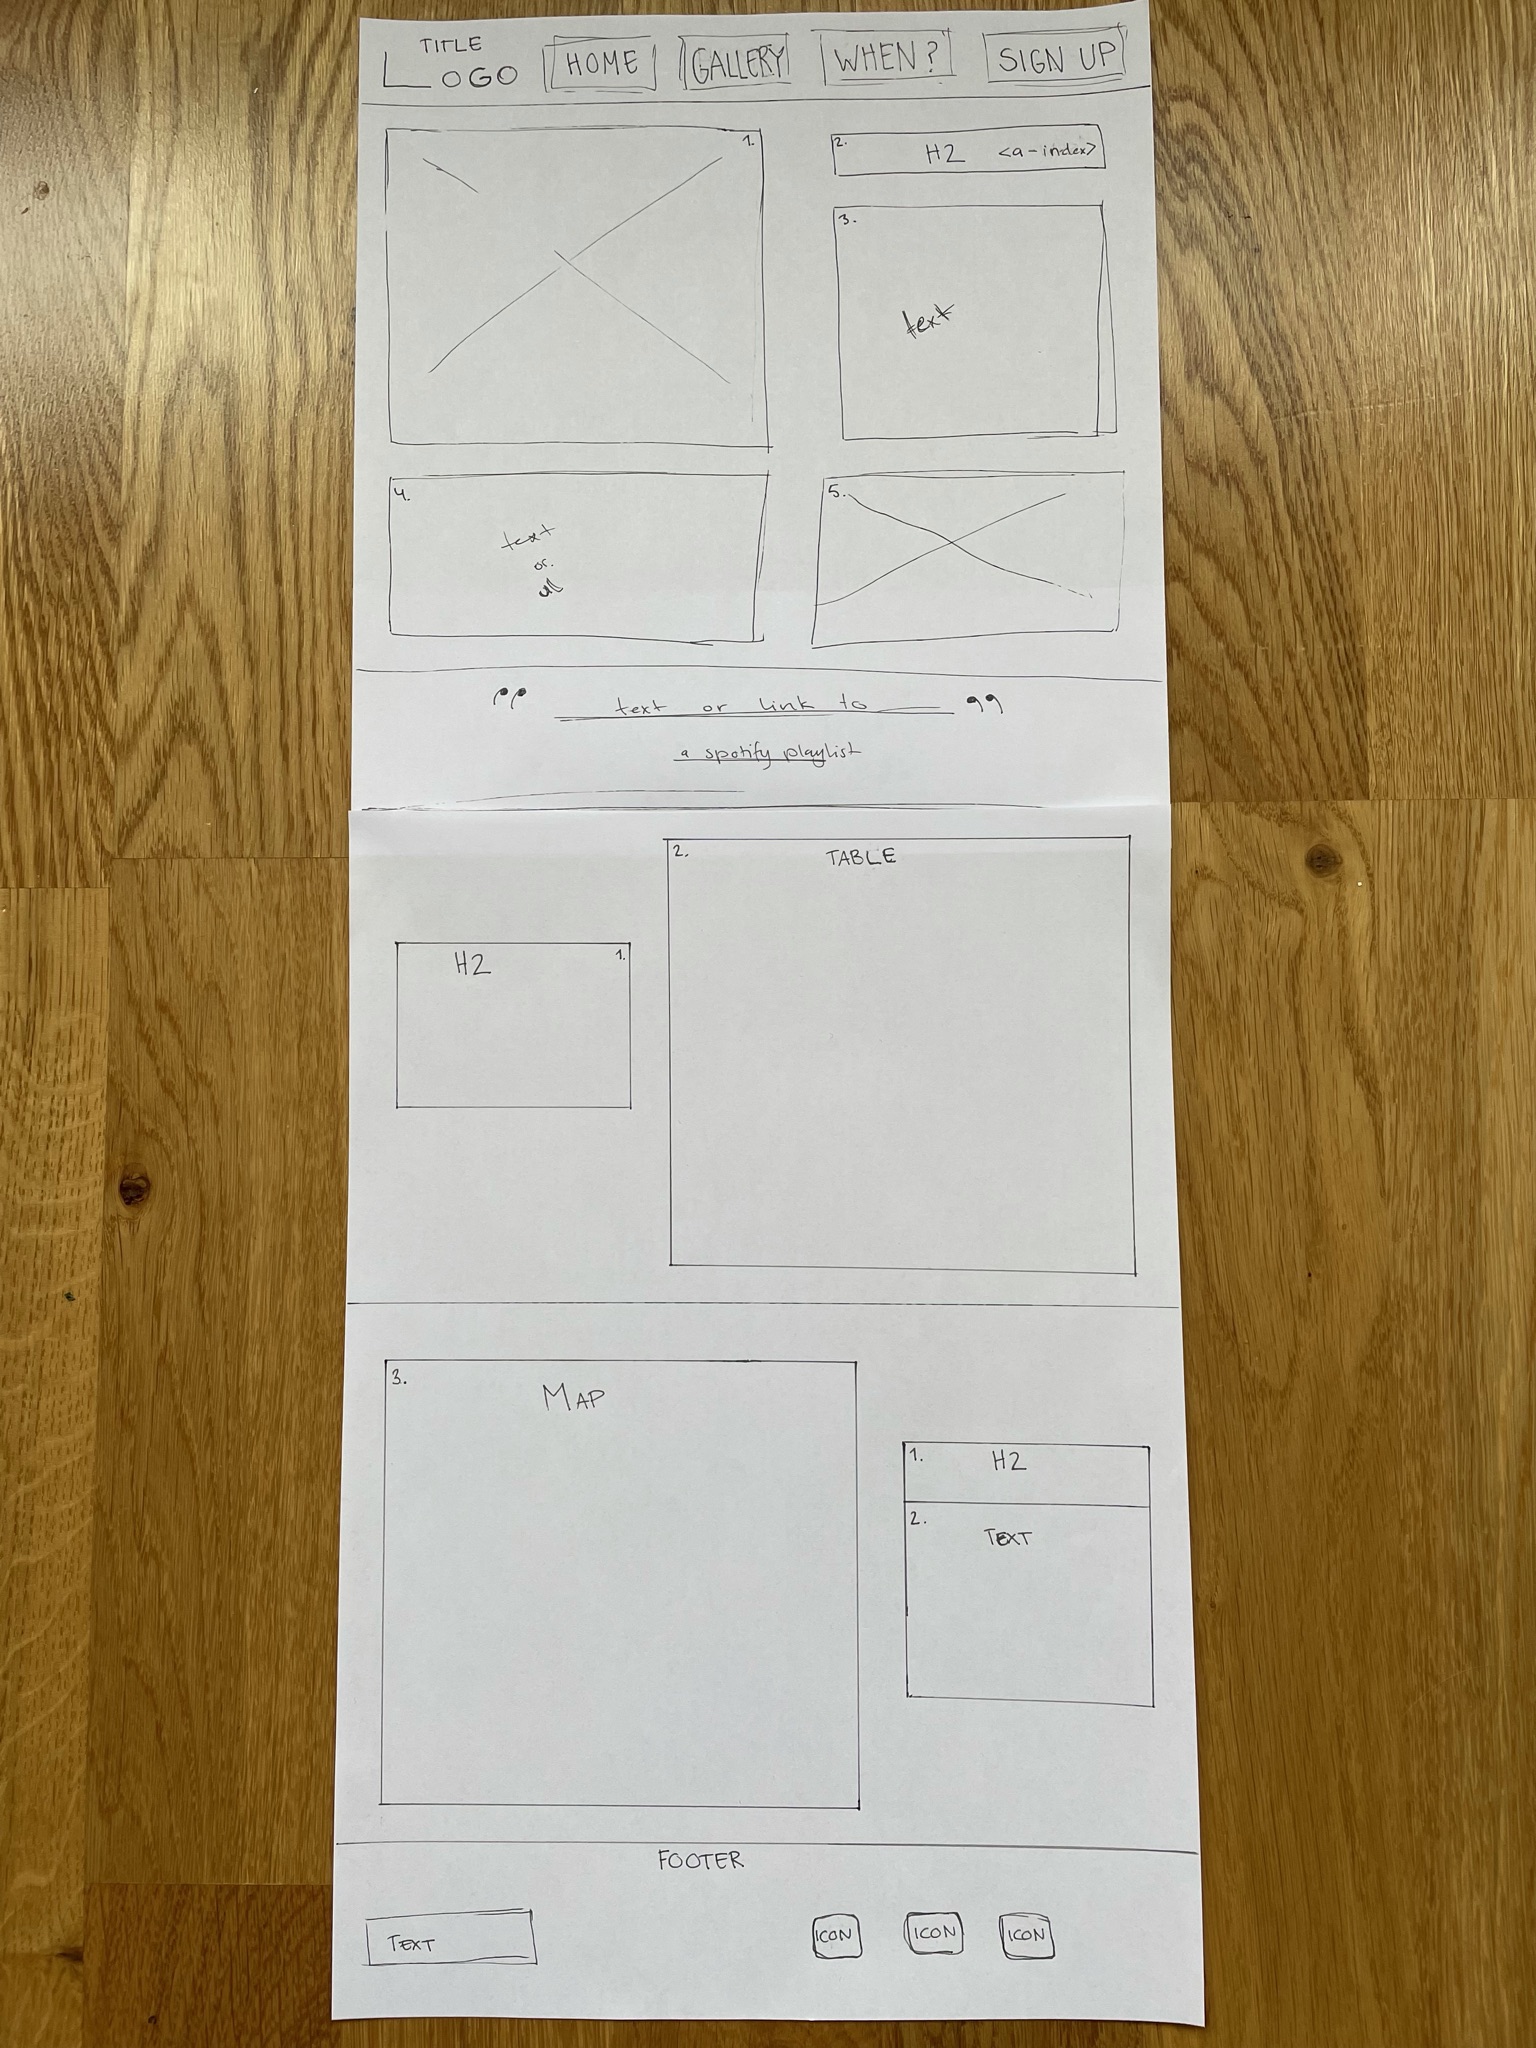 TITLE
LOGO
HOME
GALLERY
WHEN?
SIGN UP
1.
2.
H2 <a-index>
3.
text
4.
text
or
ul
5.
" text or link to "
a spotify playlist
H2 1.
2. TABLE
3. MAP
1. H2
2. TEXT
FOOTER
TEXT
ICON
ICON
ICON